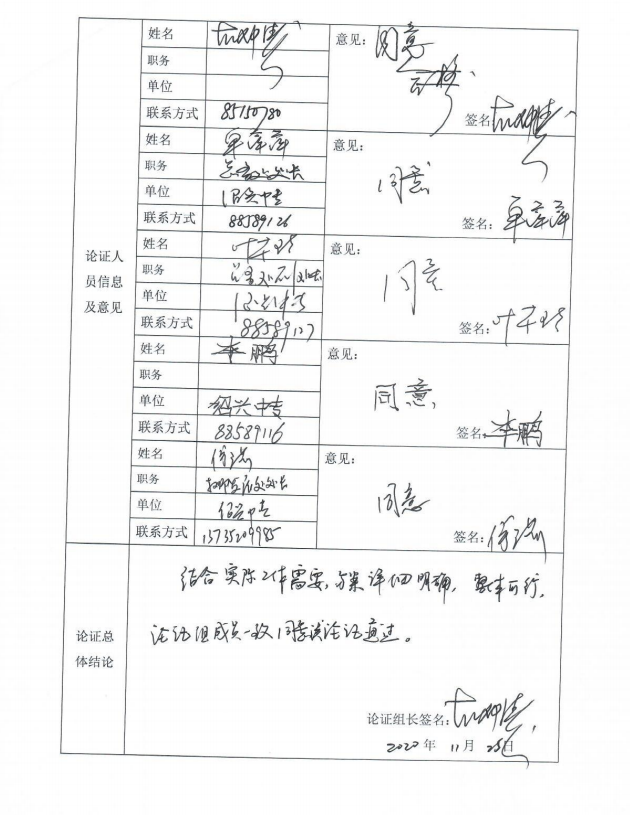 姓名
意见：同意
职务
单位
联系方式 85150780
签名：
姓名 单萍萍
意见：
职务
同意
单位 绍兴中专
联系方式 88589126
签名：单萍萍
论证人
员信息
及意见
姓名
意见：
职务
同意
单位
联系方式 88589127
签名：
姓名 李鹏
意见：
职务
同意
单位 绍兴中专
联系方式 88589116
签名：李鹏
姓名
意见：
职务
同意
单位 绍兴中专
联系方式 13735209985
签名：
论证总
体结论
结合实际工作需要，方案详细明确，基本可行，
论证组成员一致同意该论证通过。
论证组长签名：
2020年 11月 日